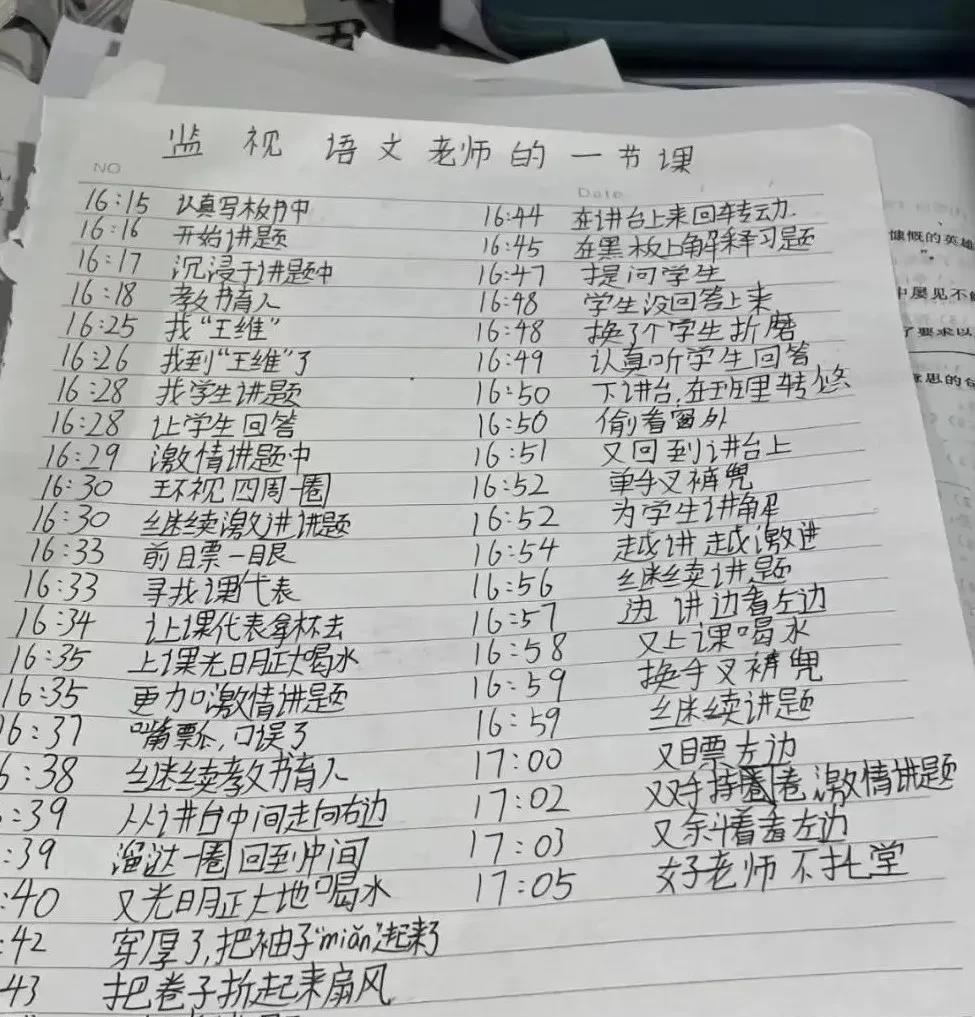 监视语文老师的一节课
NO
Date
16:15 认真写板书中
16:16 开始讲题
16:17 沉浸于讲题中
16:18 教书育人
16:25 找“王维”
16:26 找到“王维”了
16:28 找学生讲题
16:28 让学生回答
16:29 激情讲题中
16:30 环视四周一圈
16:30 继续激进讲题
16:33 前瞟一眼
16:33 寻找课代表
16:34 让课代表拿杯去
16:35 上课光明正大喝水
16:35 更加激情讲题
16:37 嘴瓢,口误了
6:38 继续教书育人
:39 从讲台中间走向右边
:39 溜达一圈回到中间
:40 又光明正大地喝水
:42 穿厚了,把袖子“miǎn”起来了
43 把卷子折起来扇风
16:44 在讲台上来回转动.
16:45 在黑板上解释习题
16:47 提问学生
16:48 学生没回答上来
16:48 换了个学生折磨
16:49 认真听学生回答
16:50 下讲台,在班里转悠
16:50 偷看窗外
16:51 又回到讲台上
16:52 单手叉裤兜
16:52 为学生讲解
16:54 越讲越激进
16:56 继续讲题
16:57 边讲边看左边
16:58 又上课喝水
16:59 换手叉裤兜
16:59 继续讲题
17:00 又瞟左边
17:02 双手持圈卷激情讲题
17:03 又斜着看左边
17:05 好老师不扎堂
慷慨的英雄
中屡见不
了要求以
意思的句